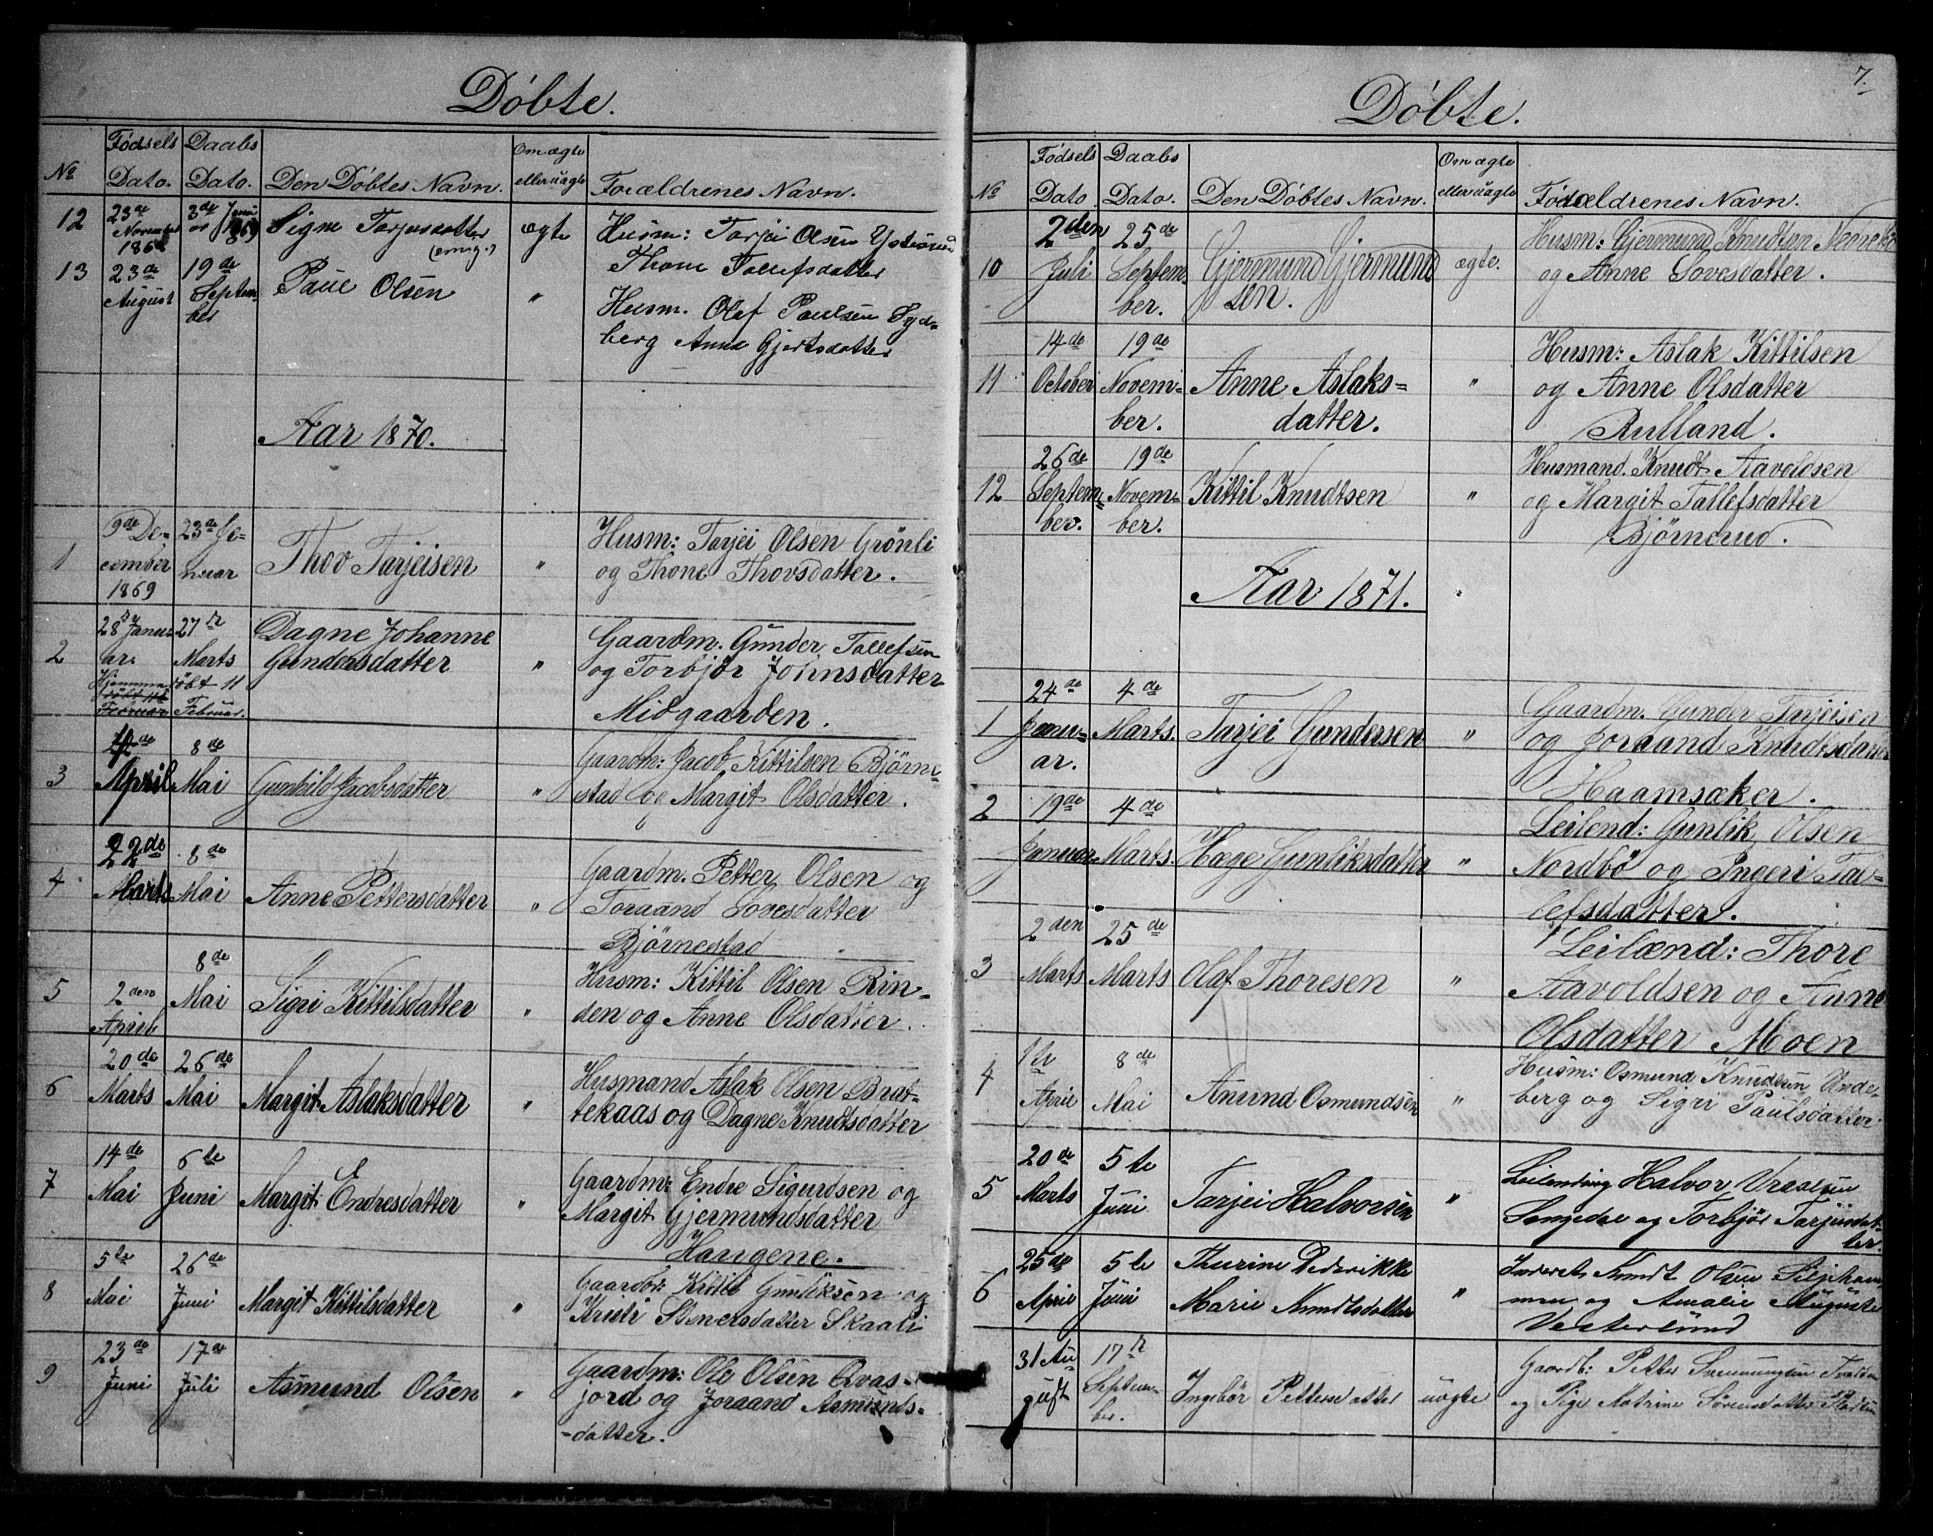 Döbte.
№
Fødsels Dato.
Daabs Dato.
Den Döbtes Navn.
Om ægte eller uægte
Forældrenes Navn.
12
23de November
3de
Signe Tarjeisdatter
ægte
Husm: Tarjei Olsen
Thone Tallefsdatter
13
23de August
19de Septem-
ber
Olsen
"
Husm. Olaf Paulsen Syd-
berg Anne Gjertsdatter
Aar 1870.
1
9de De-
cember
1869
23de Ja-
nuar
Thov Tarjeisen
"
Husm: Tarjei Olsen Grönli
og Thone Thovsdatter.
2
28de Janu-
ar
Hjemme-
döbt 11
Februar.
27de
Marts
Dagne Johanne
Gundersdatter
"
Gaardm. Gunder Tallefsen
og Torbjør Johnsdatter
Midgaarden.
3
April
8de
Mai
Gunhild Jacobsdatter
"
Gaardm: Jacob Kittilsen Bjørne-
stad og Margit Olsdatter.
4
22de
Marts
8de
Mai
Anne Pettersdatter
"
Gaardm. Petter Olsen og
Toraand Sovesdatter
Bjørnestad
5
2den
April
8de
Mai
Sigri Kittilsdatter
"
Husm: Kittil Olsen Rin-
den og Anne Olsdatter.
6
20de
Marts
26de
Mai
Margit Aslaksdatter
"
Husmand Aslak Olsen Brat-
tekaas og Dagne Knudtsdatter
7
14de
Mai
6te
Juni
Margit Endresdatter
"
Gaardm: Endre Sigurdsen og
Margit Gjermundsdatter
Haugene.
8
5te
Mai
26de
Juni
Margit Kittilsdatter
"
Gaardbr: Kittil Gunliksen og
Steinersdatter Skaali
9
23de
Juni
17de
Juli
Asmund Olsen
"
Gaardm: Ole Olsen Qvas-
jord og Joraand Asmunds-
-datter.
7.
Döbte.
№
Fødsels Dato
Daabs Dato.
Den Döbtes Navn.
Om ægte eller uægte
Fødældrenes Navn.
10
2den
Juli
25de
Septem-
ber.
Gjermund Gjermund
sen.
ægte.
Husm: Gjermund Knudsen
og Anne Sovesdatter.
11
14de
October
19de
Novem-
ber.
Anne Aslaks-
datter.
"
Husm: Aslak Kittilsen
og Anne Olsdatter
Rulland.
12
26de
Septem-
ber.
19de
Novem-
ber.
Kittil Knudtsen
"
Husmand. Knudt Aavoldsen
og Margit Tallefsdatter
Bjørnerud.
Aar 1871.
1
24de
Janu-
ar.
4de
Marts.
Tarjei Gundersen
"
Gaardm. Gunder Tarjeisen
og Joraand Knudtsdatter
Haamsæker.
2
19de
Januar
4de
Marts.
Hæge Gunliksdatter
"
Leilend: Gunlik Olsen
Nordbö og Ingeri Tal-
lefsdatter.
3
2den
Marts
25de
Marts
Olaf Thoresen
"
Leilænd: Thore
Aavoldsen og Anne
Olsdatter Moen
4
1te
April
8de
Mai
Anund Osmundsen
"
Husm: Osmund Knudtsen Unde-
berg og Sigri Paulsdatter.
5
20de
Marts
5te
Juni
Tarjei Halvorsen
"
Leilending Halvor
Songedal og Torbjör Tarjeisdat-
ter.
6
25de
April
5te
Juni
Thurine Dederikke
Marie Knudtsdatter
"
Inderst Knudt Olsen
og Amalie Auguste
Vesterlund
31 Au-
gust
17de
Septem-
ber.
Ingebör Pettersdatter
uægte
Gaardb: Petter
og Pige Katrine Sørensdatter